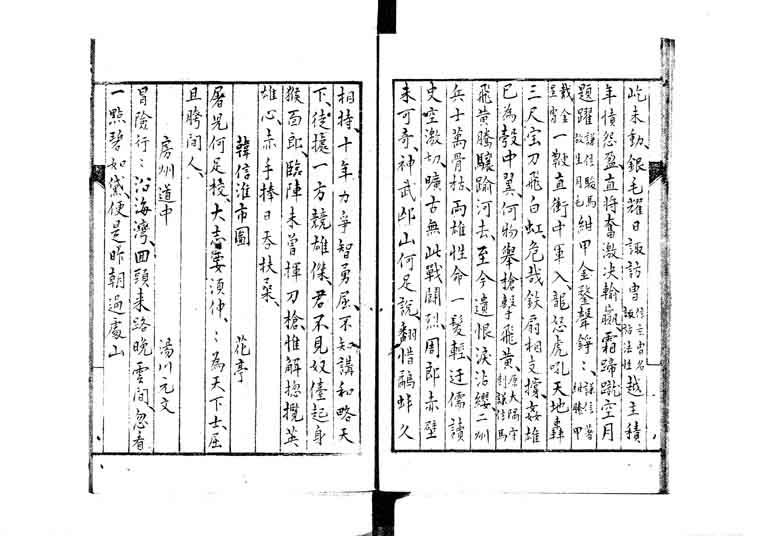 屹未動、銀毛耀日諏訪曺 信玄曺名諏訪法性 越主積
年憤怨盈、直将奮激決輸贏、霜蹄蹴空月
題躍 謙信駿馬放生月毛 紺甲金鍪聲錚〻 謙信著紺糸甲
戴金星冑 一鞭直衝中軍入、龍怒虎吼天地轟
三尺宝刀飛白虹、危哉鉄扇相支撐、姦雄
已為彀中翼、何物舉槍撃飛黄、 原大隅守刺謙信馬
飛黄騰驤踰河去、至今遺恨涙沾纓、二州
兵士萬骨枯、両雄性命一髮輕、迂儒讀
史空激切、曠古無此戰鬪烈、周郎赤壁
未可奇、神武邙山何足説、翻惜鷸蚌久
相持、十年力爭智勇屈、不知講和略天
下、徒攘一方競雄傑、君不見奴僮起身
猴面郎、臨陣未曾揮刀槍、惟解摠攬英
雄心、赤手捧日呑扶桑、
韓信淮市圖 花亭
屠児何足校、大志要須伸、〻為天下士、屈
且胯間人、
房州道中 湯川元文
冒險行〻沿海灣、回頭来路晩雲間、忽看
一點碧如黛、便是昨朝過處山